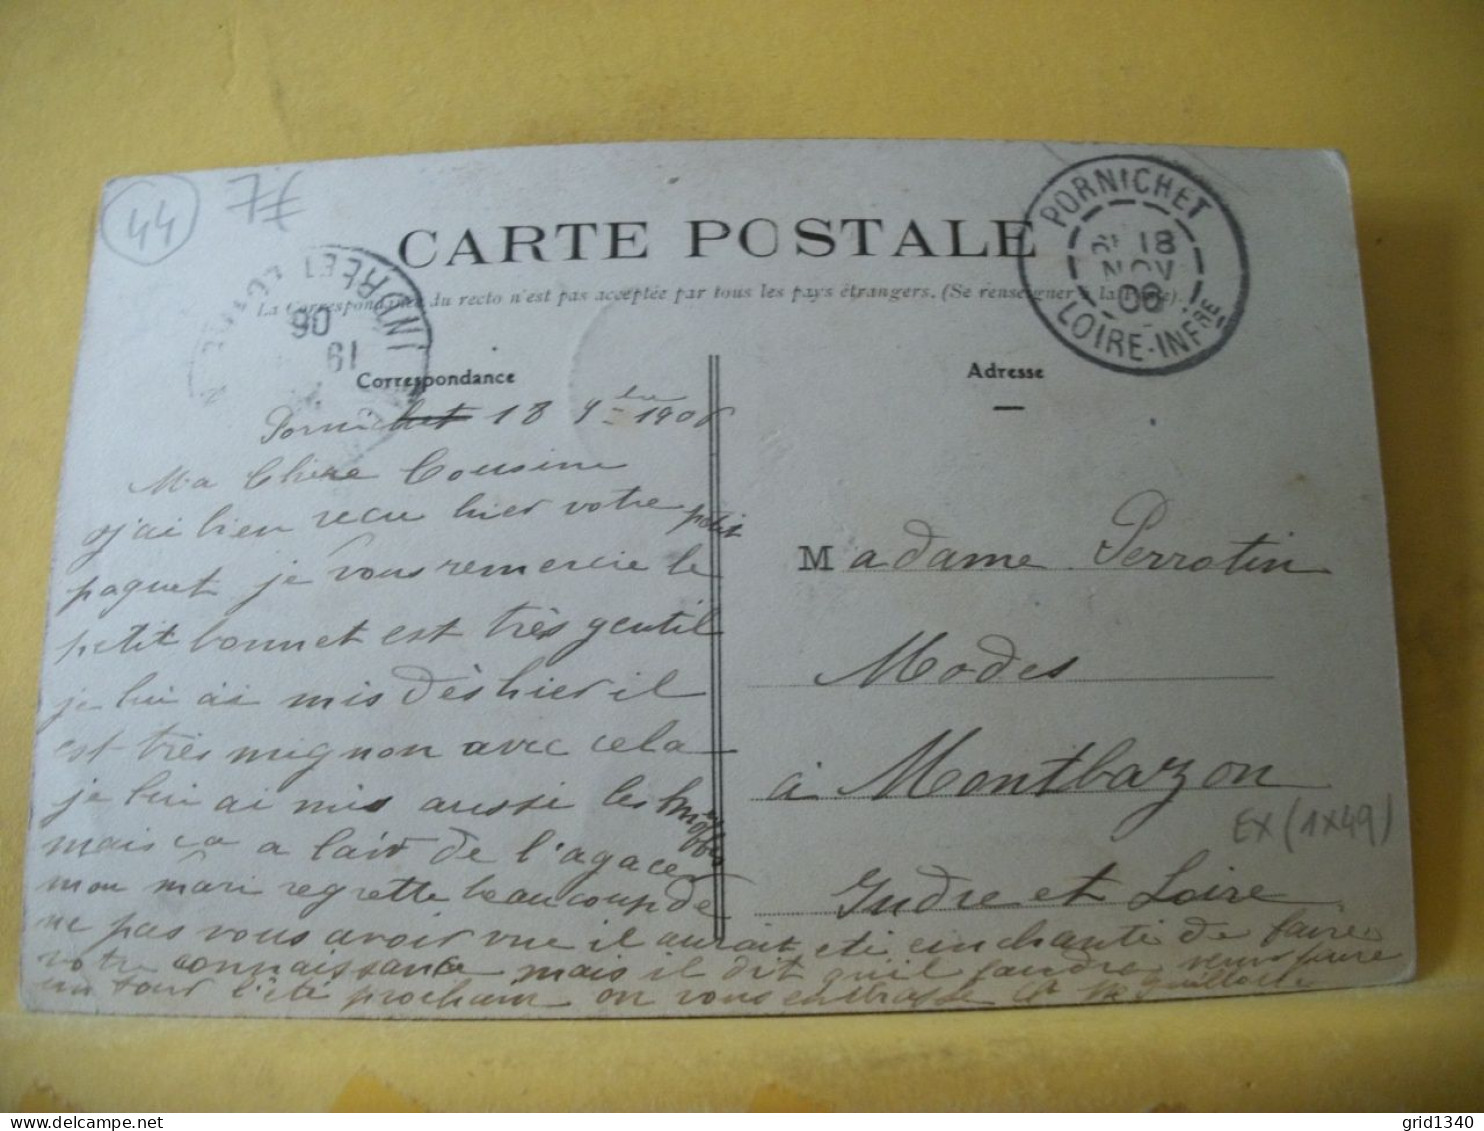 44
7€
CARTE POSTALE
La Correspondance du recto n'est pas acceptée par tous les pays étrangers. (Se renseigner à la Poste).
PORNICHET
18
NOV
06
LOIRE-INFRE
INDRE ET LOIRE
19
06
Correspondance
Adresse
Pornichet 18 9bre 1906
Ma Chère Cousine
j'ai bien recu hier votre petit
paquet je vous remercie le
petit bonnet est très gentil
je lui ai mis dès hier il
est très mignon avec cela
je lui ai mis aussi les
mais ça a l'air de l'agacer
mon mari regrette beaucoup de
ne pas vous avoir vue il aurait été enchanté de faire
votre connaissance mais il dit qu'il faudra venir faire
un tour l'été prochain on vous embrasse
Madame Perrotin
Modes
à Montbazon
Indre et Loire
EX (1X49)
grid1340